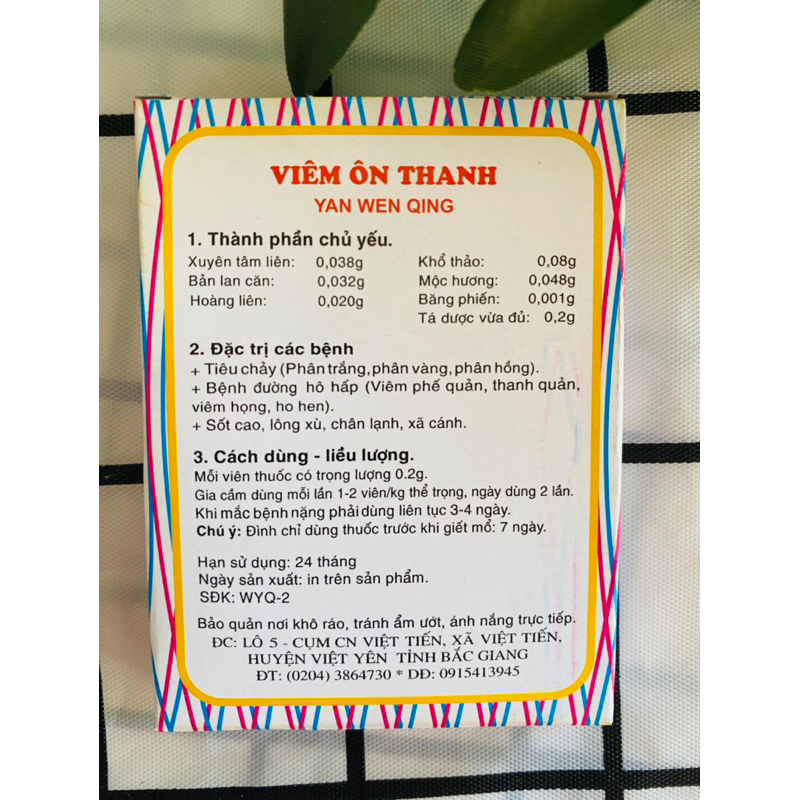 VIÊM ÔN THANH
YAN WEN QING
1. Thành phần chủ yếu.
Xuyên tâm liên: 0,038g
Bản lan căn: 0,032g
Hoàng liên: 0,020g
Khổ thảo: 0,08g
Mộc hương: 0,048g
Băng phiến: 0,001g
Tá dược vừa đủ: 0,2g
2. Đặc trị các bệnh
+ Tiêu chảy (Phân trắng, phân vàng, phân hồng).
+ Bệnh đường hô hấp (Viêm phế quản, thanh quản,
viêm họng, ho hen).
+ Sốt cao, lông xù, chân lạnh, xã cánh.
3. Cách dùng - liều lượng.
Mỗi viên thuốc có trọng lượng 0.2g.
Gia cầm dùng mỗi lần 1-2 viên/kg thể trọng, ngày dùng 2 lần.
Khi mắc bệnh nặng phải dùng liên tục 3-4 ngày.
Chú ý: Đình chỉ dùng thuốc trước khi giết mổ: 7 ngày.
Hạn sử dụng: 24 tháng
Ngày sản xuất: in trên sản phẩm.
SĐK: WYQ-2
Bảo quản nơi khô ráo, tránh ẩm ướt, ánh nắng trực tiếp.
ĐC: LÔ 5 - CỤM CN VIỆT TIẾN, XÃ VIỆT TIẾN,
HUYỆN VIỆT YÊN TỈNH BẮC GIANG
ĐT: (0204) 3864730 * DĐ: 0915413945